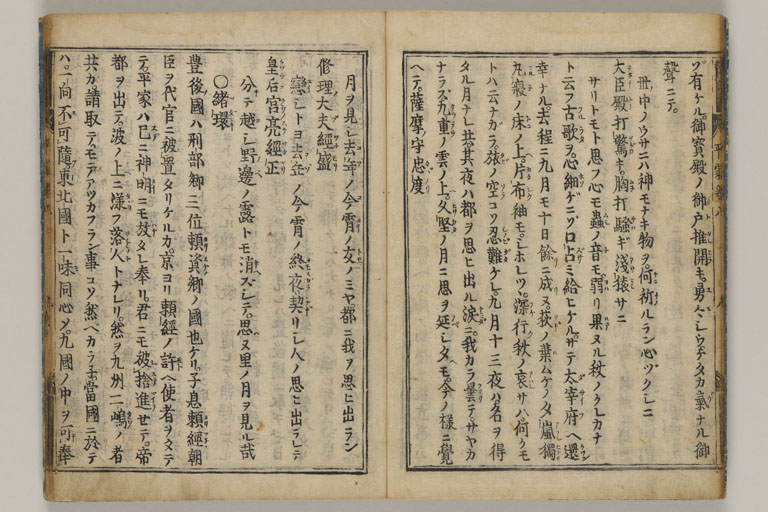 ヅ有ケル。御寳殿ノ御戸推開キ。勇々シウケタカ氣ナル御
聲ニテ。
世中ノウサニハ神モナキ物ヲ何祈ルラン心ヅクシニ
大臣殿打驚キ。胸打騒ギ浅猿サニ
サリトモト思フ心モ蟲ノ音モ弱リ果ヌル秋ノクレカナ
ト云フ古歌ヲ。心細ゲニソ口占ミ給ヒケル。サテ太宰府ヘ還
幸ナル。去程ニ九月モ十日餘ニ成ヌ。荻ノ葉ムケノタ嵐獨
丸寢ノ床ノ上。片布袖モシホレツヽ。深行秋ノ哀サハ何クモ
トハ云ナガラ。旅ノ空コソ忍難ケレ。九月十三夜ハ名ヲ得
タル月ナレ共。其夜ハ都ヲ思ヒ出ル涙ニ。我カラ曇テサヤカ
ナラズ。九重ノ雲ノ上。久堅ノ月ニ思ヲ延シタヘモ。今ノ様ニ覺
ヘテ。薩摩ノ守忠度
月ヲ見シ去年ノ今宵ノ友ノミヤ都ニ我ヲ思ヒ出ラン
修理大夫經盛
戀シトヨ去年ノ今宵ノ終夜契リシ人ノ思ヒ出ラレテ
皇后宮亮經正
分テ越シ野邊ノ露トモ消ズシテ。思ヌ里ノ月ヲ見ル哉
〇緒環
豊後國ハ刑部卿三位頼資卿ノ國也ケリ。子息頼經朝
臣ヲ代官ニ被置タリケルカ。京ヨリ頼經ノ許ヘ使者ヲタテ
テ。平家ハ巳ニ神明ニモ放タレ奉リ。君ニモ被捨進セテ。帝
都ヲ出テ。波ノ上ニ漾フ落人トナレリ。然ヲ九州二嶋ノ者
共カ請取テ。モテアツカフラン事コソ然ヘカラ子。當國ニ於テ
ハ。一向不可隨。東北國ト一味同心シ。九國ノ中ヲ可奉